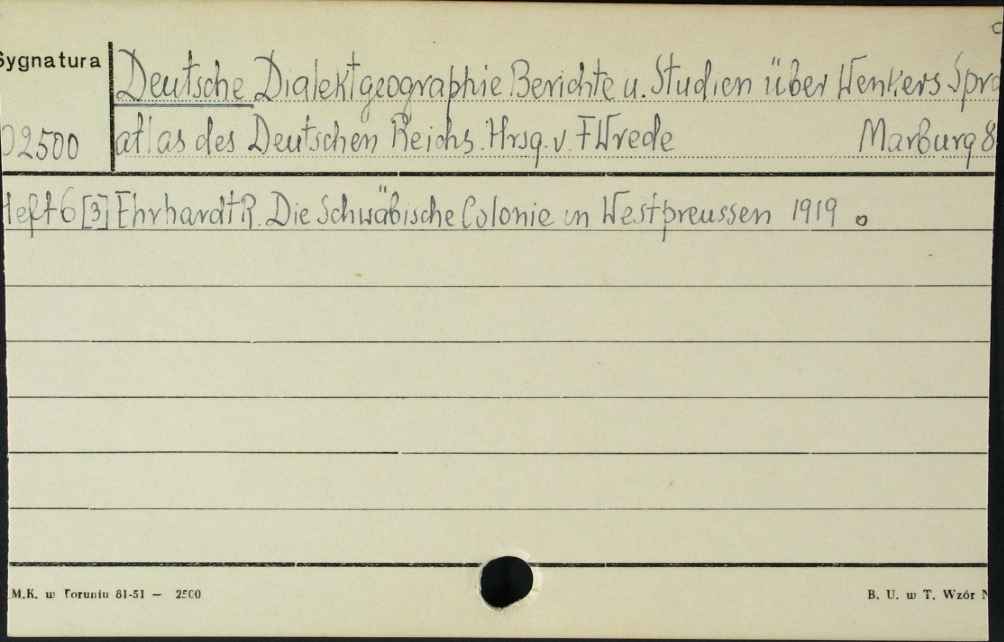 Sygnatura
Deutsche Dialektgeographie Berichte u. Studien über Wenkers Spra
02500 atlas des Deutschen Reichs. Hrsg. v. F Wrede Marburg 8
Heft 6 [3] Ehrhardt R. Die Schwäbische Colonie in Westpreussen 1919
M.K. w Toruniu 81-51 — 2500
B. U. w T. Wzór N